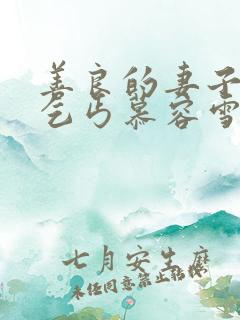 善良的妻子
乞丐慕容雪
七月安生麽
未经同意禁止转载